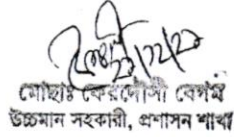 মোছাঃ ফেরদৌসী বেগম
উচ্চমান সহকারী, প্রশাসন শাখা